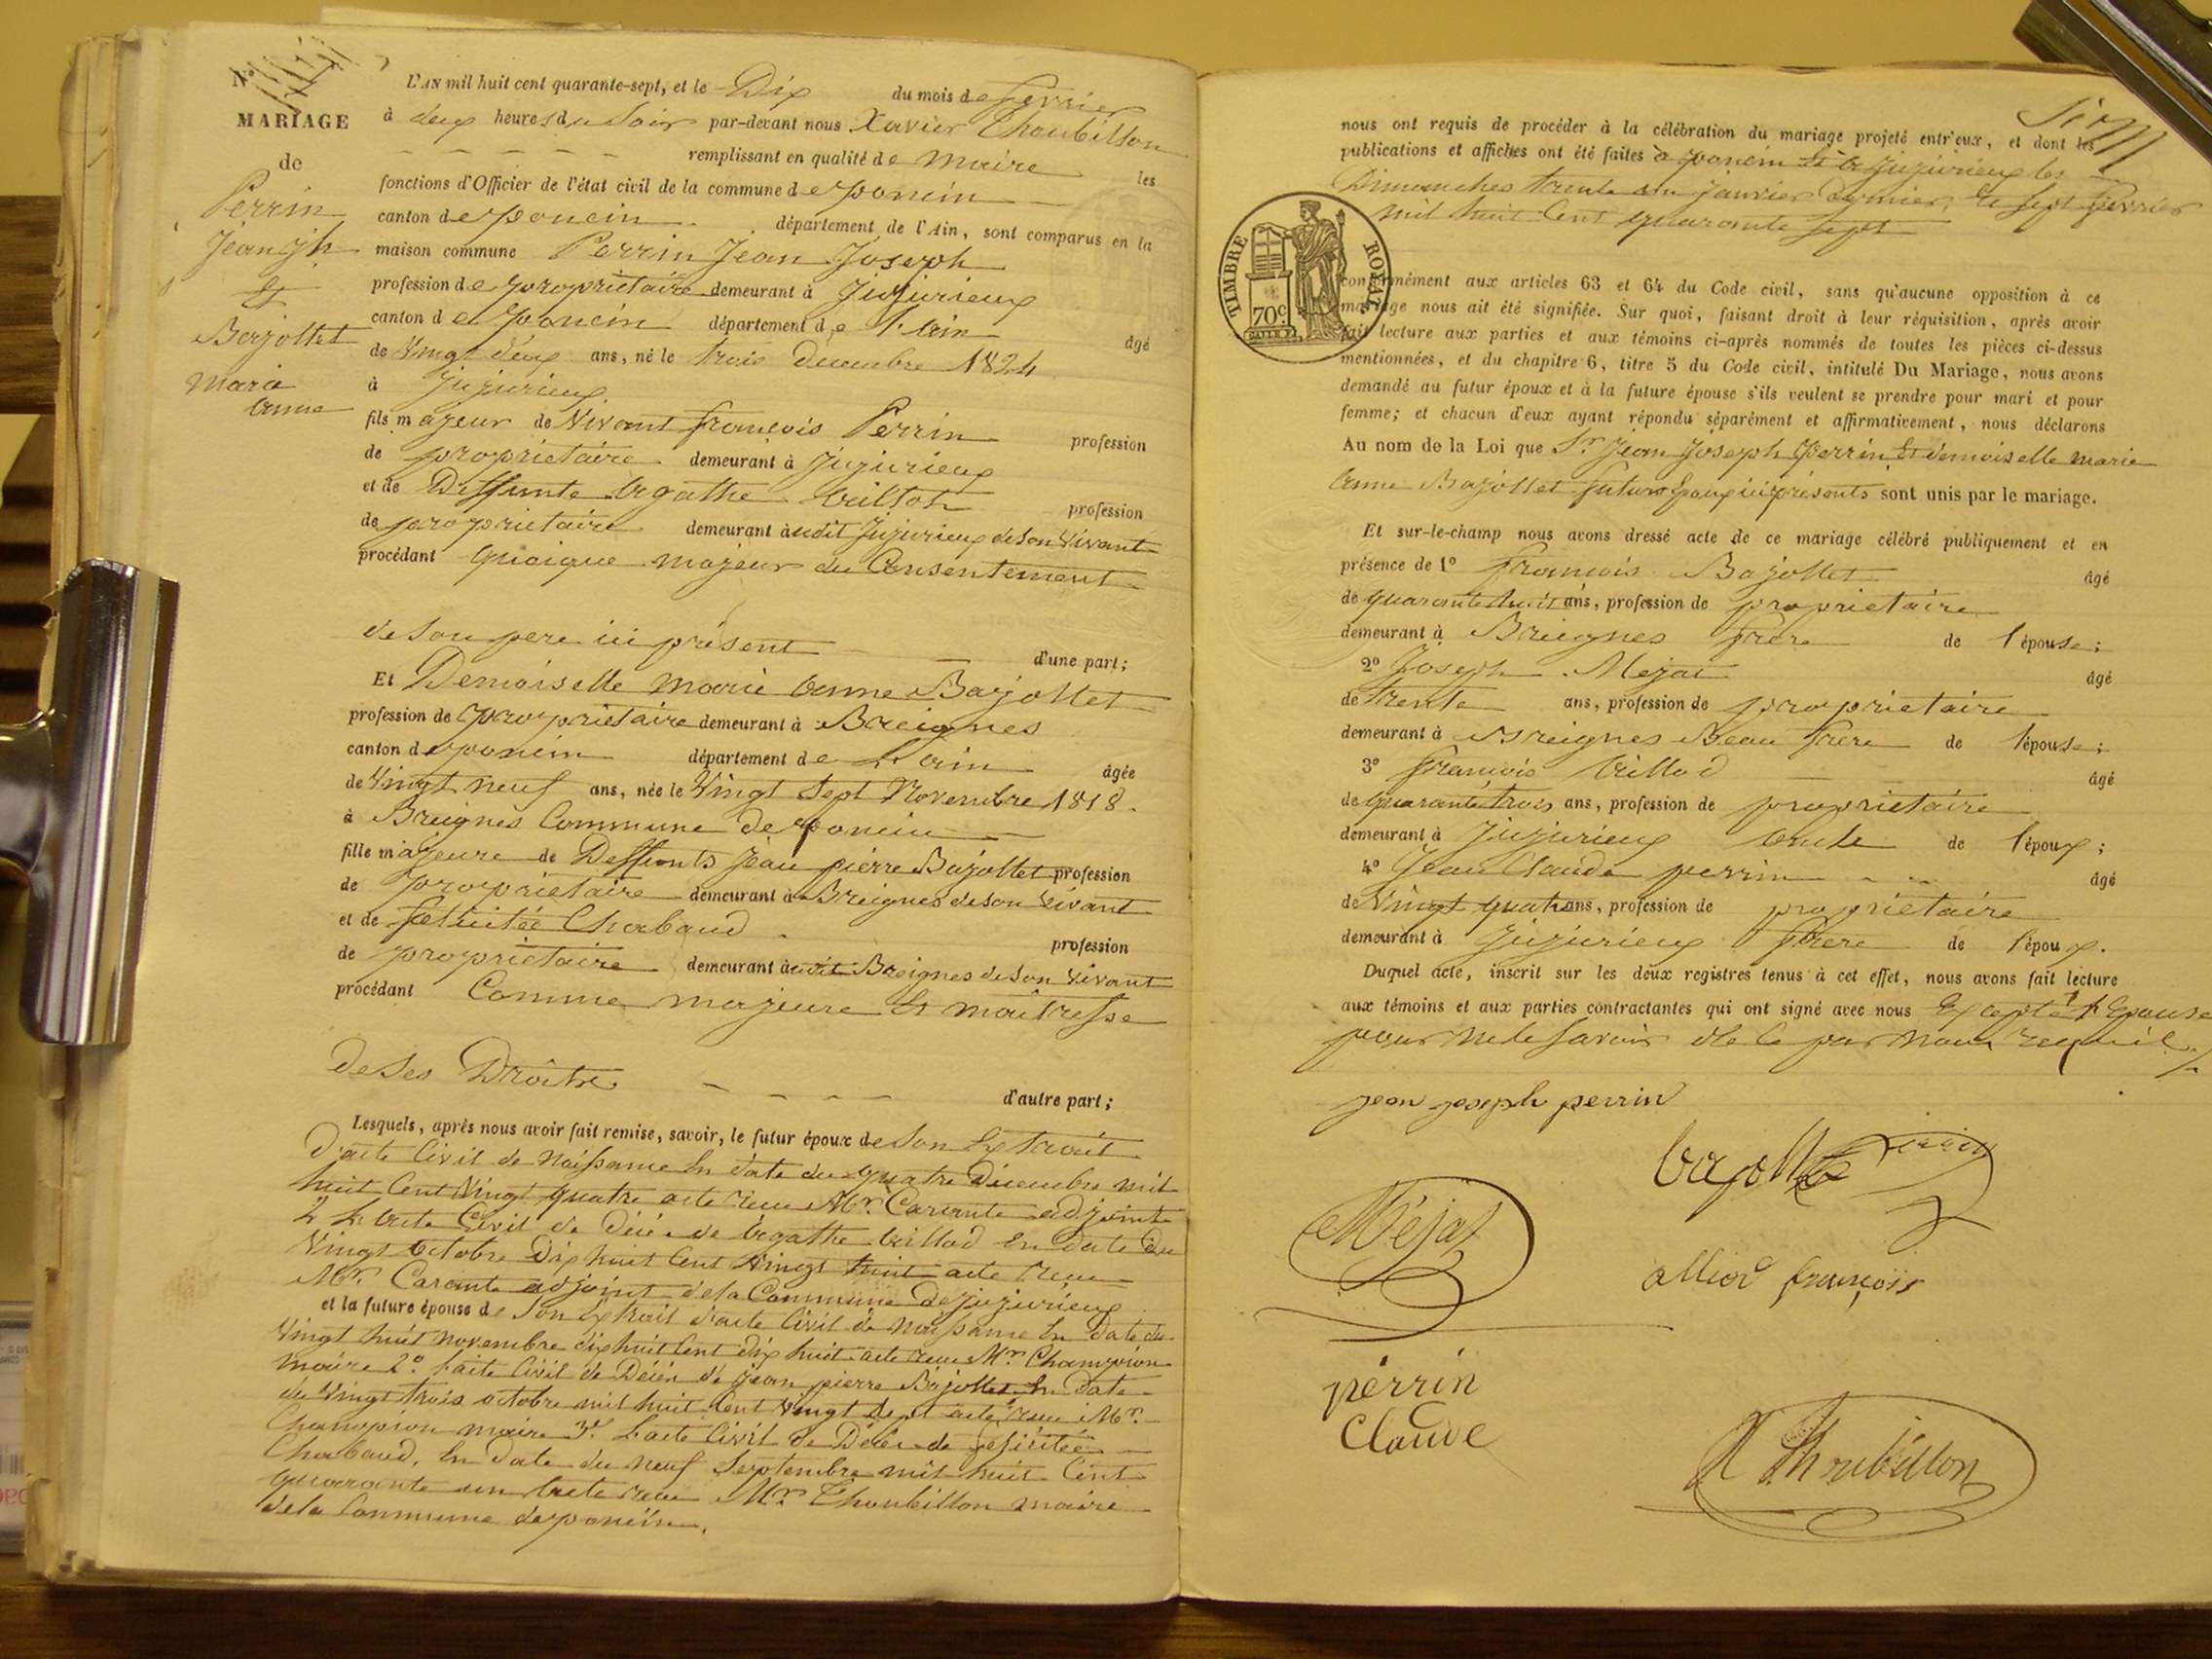 N.o
MARIAGE
de
Perrin
Jean Jh
Et
Bajollet
Marie
Anne
L'AN mil huit cent quarante-sept, et le Dix du mois de fevrier
à deux heures du Soir par-devant nous Xavier Thoubillon
remplissant en qualité de Maire les
fonctions d'Officier de l'état civil de la commune de poncin
canton de poncin département de l'Ain, sont comparus en la
maison commune Perrin Jean Joseph
profession de proprietaire demeurant à Jujurieux
canton de poncin département de l'ain âgé
de Vingt deux ans, né le trois Decembre 1824
à Jujurieux
fils majeur de Vivant françois Perrin profession
de proprietaire demeurant à Jujurieux
et de Deffunte Agathe profession
de proprietaire demeurant audit Jujurieux de son Vivant
procédant quoique majeur du Consentement
de son pere ici présent d'une part;
Et Demoiselle marie Anne Bajollet
profession de proprietaire demeurant à Breignes
canton de poncin département de L'ain âgée
de Vingt neuf ans, née le Vingt Sept Novembre 1818.
à Breignes Commune de poncin
fille majeure de Deffunts Jean pierre Bajollet profession
de proprietaire demeurant à Breignes de son Vivant
et de felicitée Chabaud profession
de proprietaire demeurant audit Breignes de son Vivant
procédant Comme majeure Et maîtresse
de ses Droits d'autre part;
Lesquels, après nous avoir fait remise, savoir, le futur époux de son Extrait
D'acte Civil de Naissance En date du quatre Décembre mil
huit Cent Vingt quatre acte recu Mr. Carante adjoint
2 L'acte Civil de Décé de Agathe Aillod En date du
Vingt Octobre Dix huit Cent Vingt huit acte recu
Mr. Carante adjoint de la Commune de jujurieux
et la future épouse de Son Extrait d'acte Civil de Naissance En Date du
Vingt huit novembre dix huit Cent dix huit acte recu Mr. Champion
maire 2.o L'acte Civil de Décés de Jean pierre Bajollet En date
du Vingt trois octobre mil huit Cent Vingt Sept acte recu Mr.
Champion maire 3.e L'acte Civil de Décés de felicitée
Chabaud, En date du neuf Septembre mil huit Cent
quarante un acte recu Mr. Thoubillon maire
de la Commune de poncin.
nous ont requis de procéder à la célébration du mariage projeté entr'eux, et dont les
publications et affiches ont été faites à poncin Et à Jujurieux les
Dimanches trente un Janvier Dernier, Et Sept fevrier
mil huit Cent quarante Sept
TIMBRE ROYAL
70c
conformément aux articles 63 et 64 du Code civil, sans qu'aucune opposition à ce
mariage nous ait été signifiée. Sur quoi, faisant droit à leur réquisition, après avoir
fait lecture aux parties et aux témoins ci-après nommés de toutes les pièces ci-dessus
mentionnées, et du chapitre 6, titre 5 du Code civil, intitulé Du Mariage, nous avons
demandé au futur époux et à la future épouse s'ils veulent se prendre pour mari et pour
femme; et chacun d'eux ayant répondu séparément et affirmativement, nous déclarons
Au nom de la Loi que Sr. Jean Joseph Perrin Et demoiselle marie
Anne Bajollet futurs Epoux ici présents sont unis par le mariage.
Et sur-le-champ nous avons dressé acte de ce mariage célébré publiquement et en
présence de 1o françois Bajollet âgé
de quarante huit ans, profession de proprietaire
demeurant à Breignes frère de l'épouse;
2o Joseph Mejat âgé
de trente ans, profession de proprietaire
demeurant à Breignes Beau frere de l'épouse;
3o françois Aillod âgé
de quarante trois ans, profession de proprietaire
demeurant à Jujurieux oncle de l'époux;
4o Jean Claude perrin âgé
de Vingt quatre ans, profession de proprietaire
demeurant à Jujurieux frere de l'époux.
Duquel acte, inscrit sur les deux registres tenus à cet effet, nous avons fait lecture
aux témoins et aux parties contractantes qui ont signé avec nous Excepté l'Epouse
pour ne le Savoir de ce par nous requise
jean joseph perrin
bajollet
perrin
Méjat
alliod françois
perrin
Claude
X Thoubillon